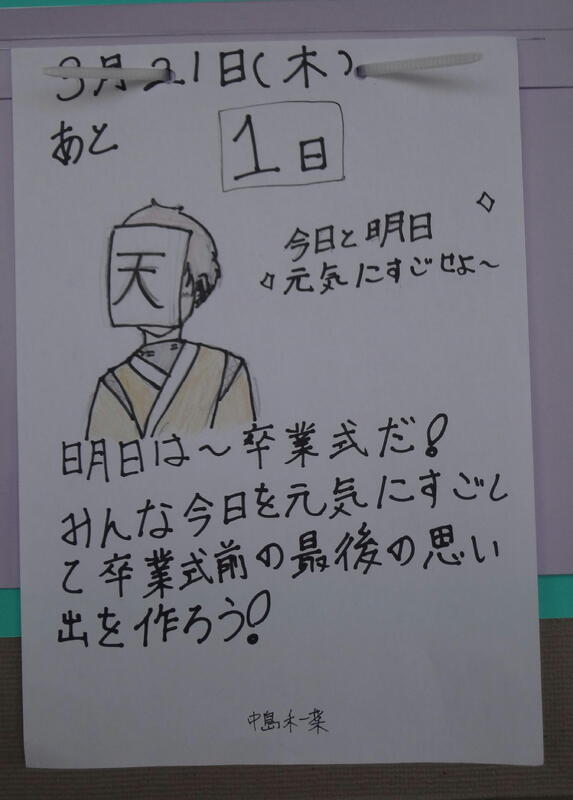 3月21日(木)
あと
1日
今日と明日
元気にすごせよ～
天
明日は～卒業式だ!
みんな今日を元気にすごし
て卒業式前の最後の思い
出を作ろう!